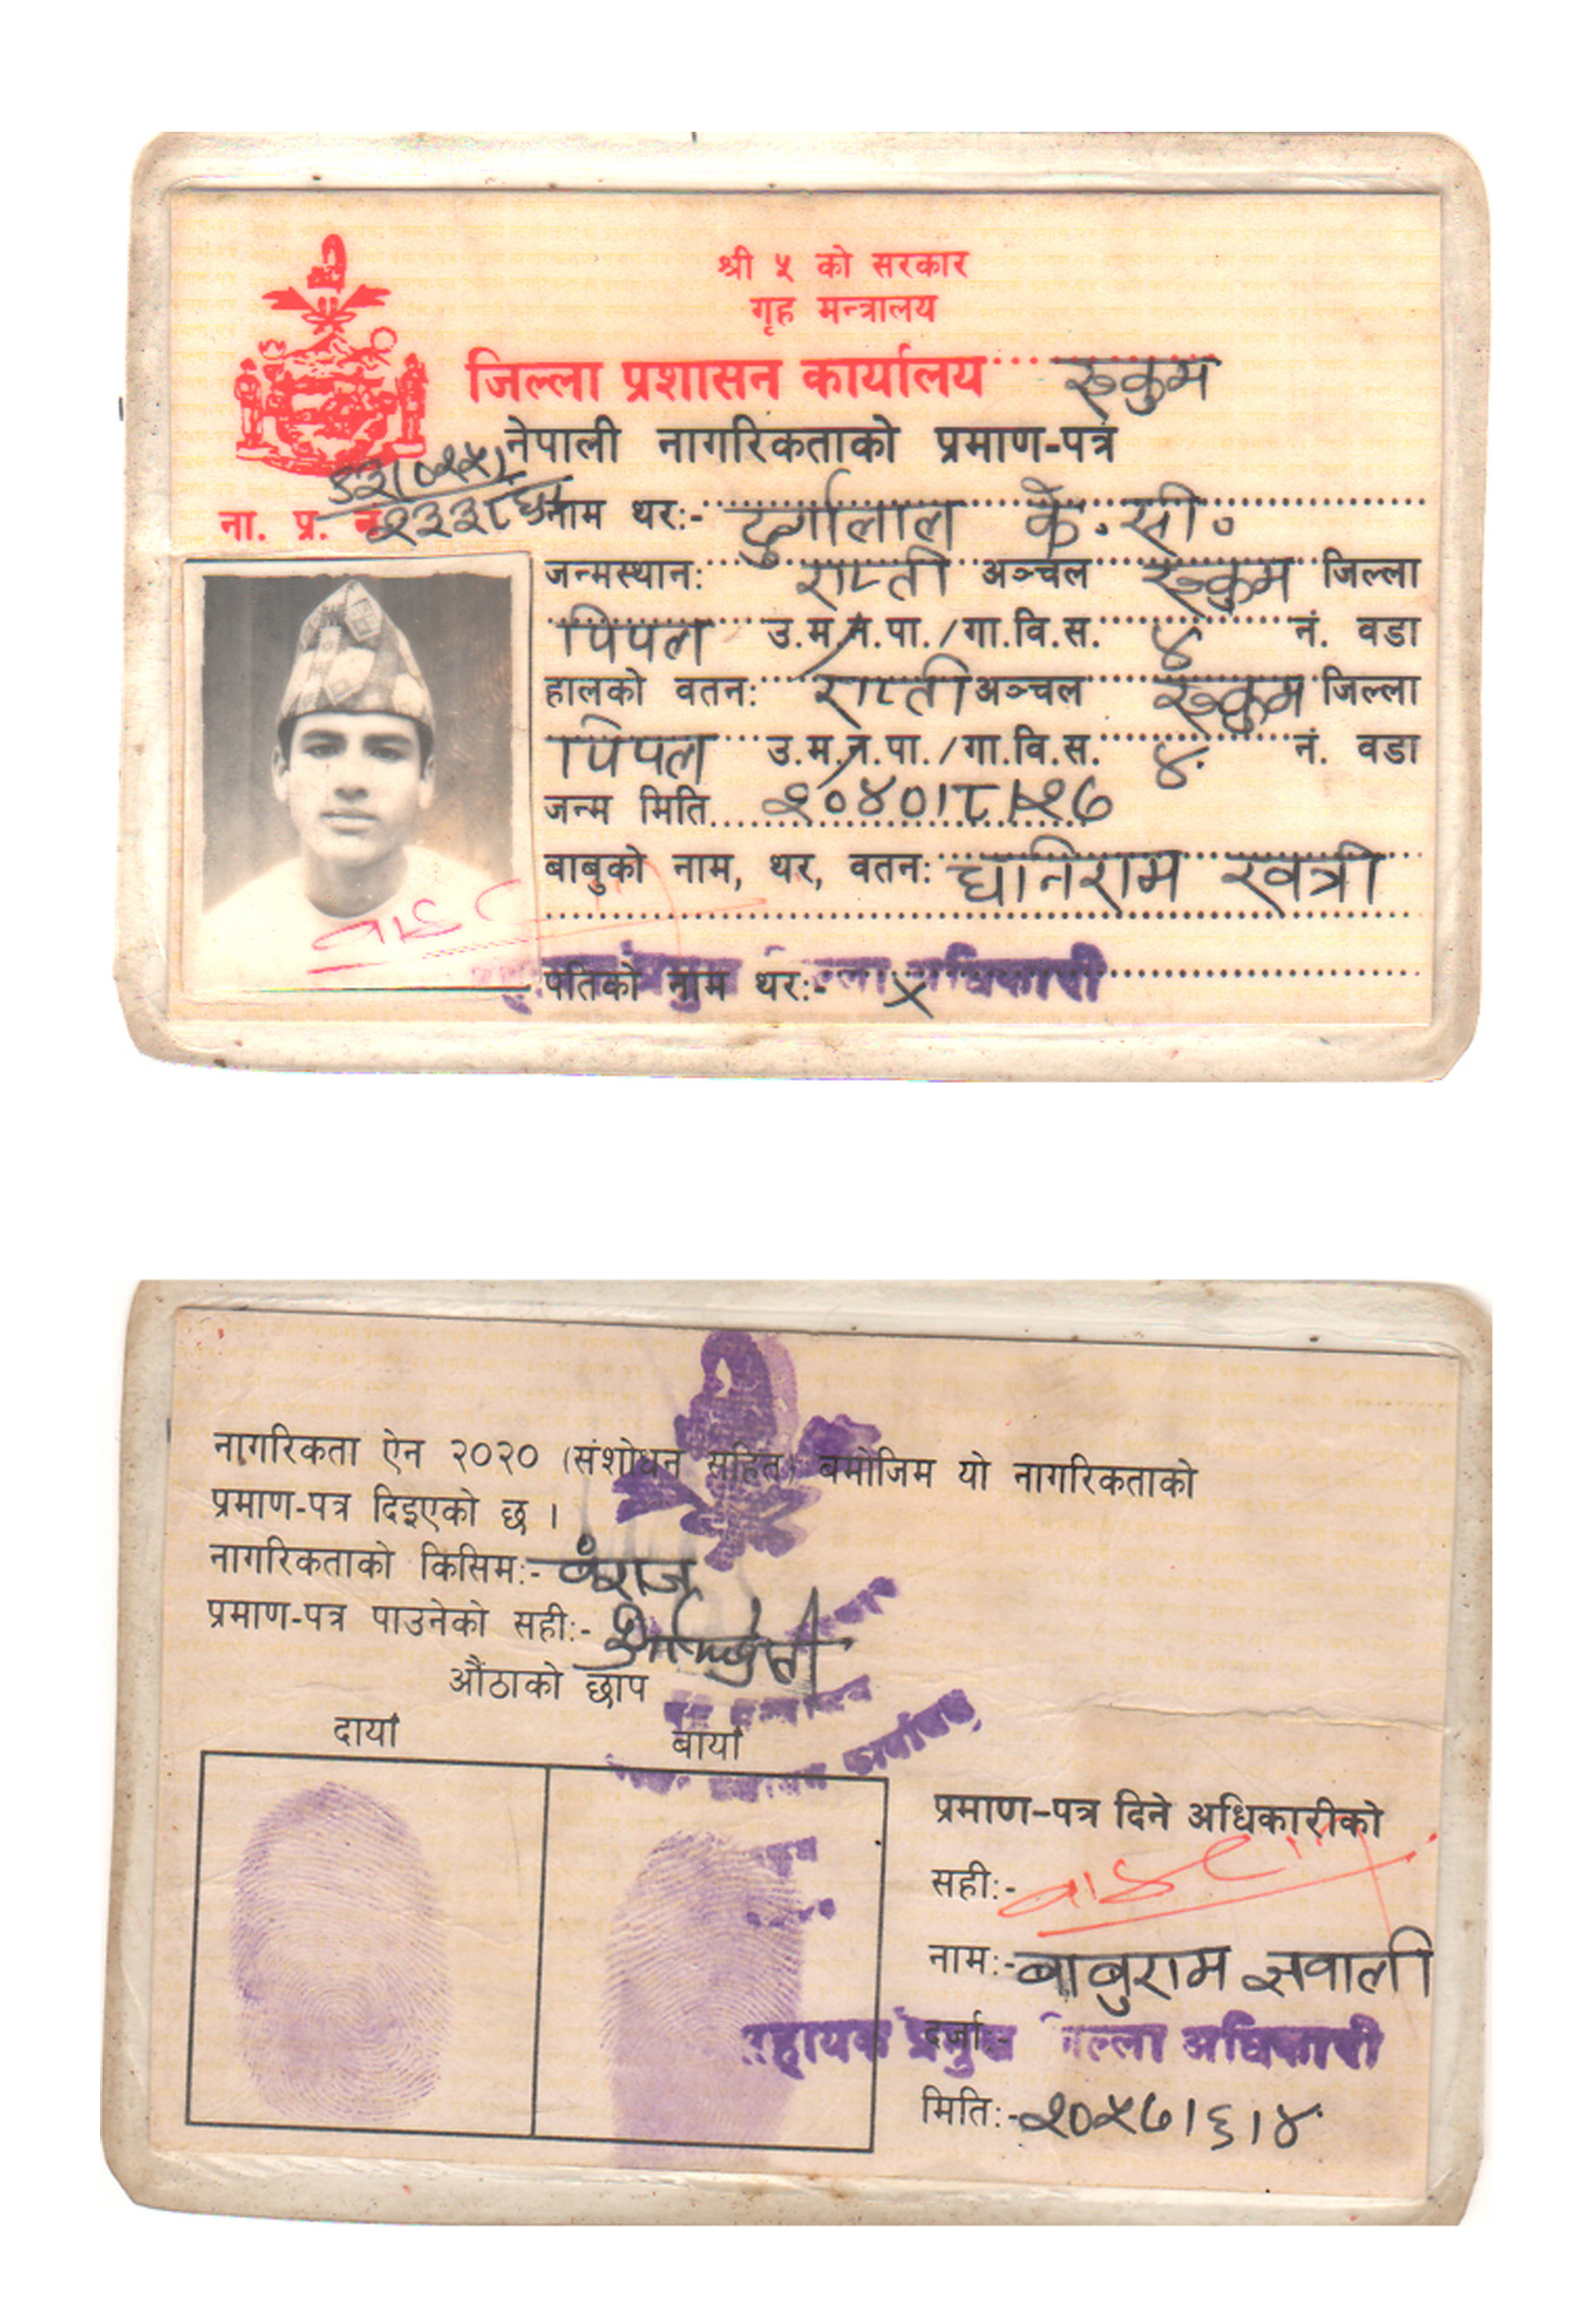 श्री ५ को सरकार
गृह मन्त्रालय
जिल्ला प्रशासन कार्यालय रुकुम
नेपाली नागरिकताको प्रमाण-पत्र
ना. प्र. नं
नाम थर:- दुर्गालाल के.सी.
जन्मस्थान: राप्ती अञ्चल रुकुम जिल्ला
पिपल उ.म.न.पा./गा.वि.स. ४ नं. वडा
हालको वतन: राप्ती अञ्चल रुकुम जिल्ला
पिपल उ.म.न.पा./गा.वि.स. ४ नं. वडा
जन्म मिति २०४०।८।२७
बाबुको नाम, थर, वतन: धनिराम खत्री
पतिको नाम थर:- x
नागरिकता ऐन २०२० (संशोधन सहित) बमोजिम यो नागरिकताको
प्रमाण-पत्र दिइएको छ ।
नागरिकताको किसिम:- वंशज
प्रमाण-पत्र पाउनेको सही:-
औंठाको छाप
दायाँ बायाँ
प्रमाण-पत्र दिने अधिकारीको
सही:-
नाम:- बाबुराम ज्ञवाली
दर्जा:- सहायक प्रमुख जिल्ला अधिकारी
मिति:- २०५७।६।४